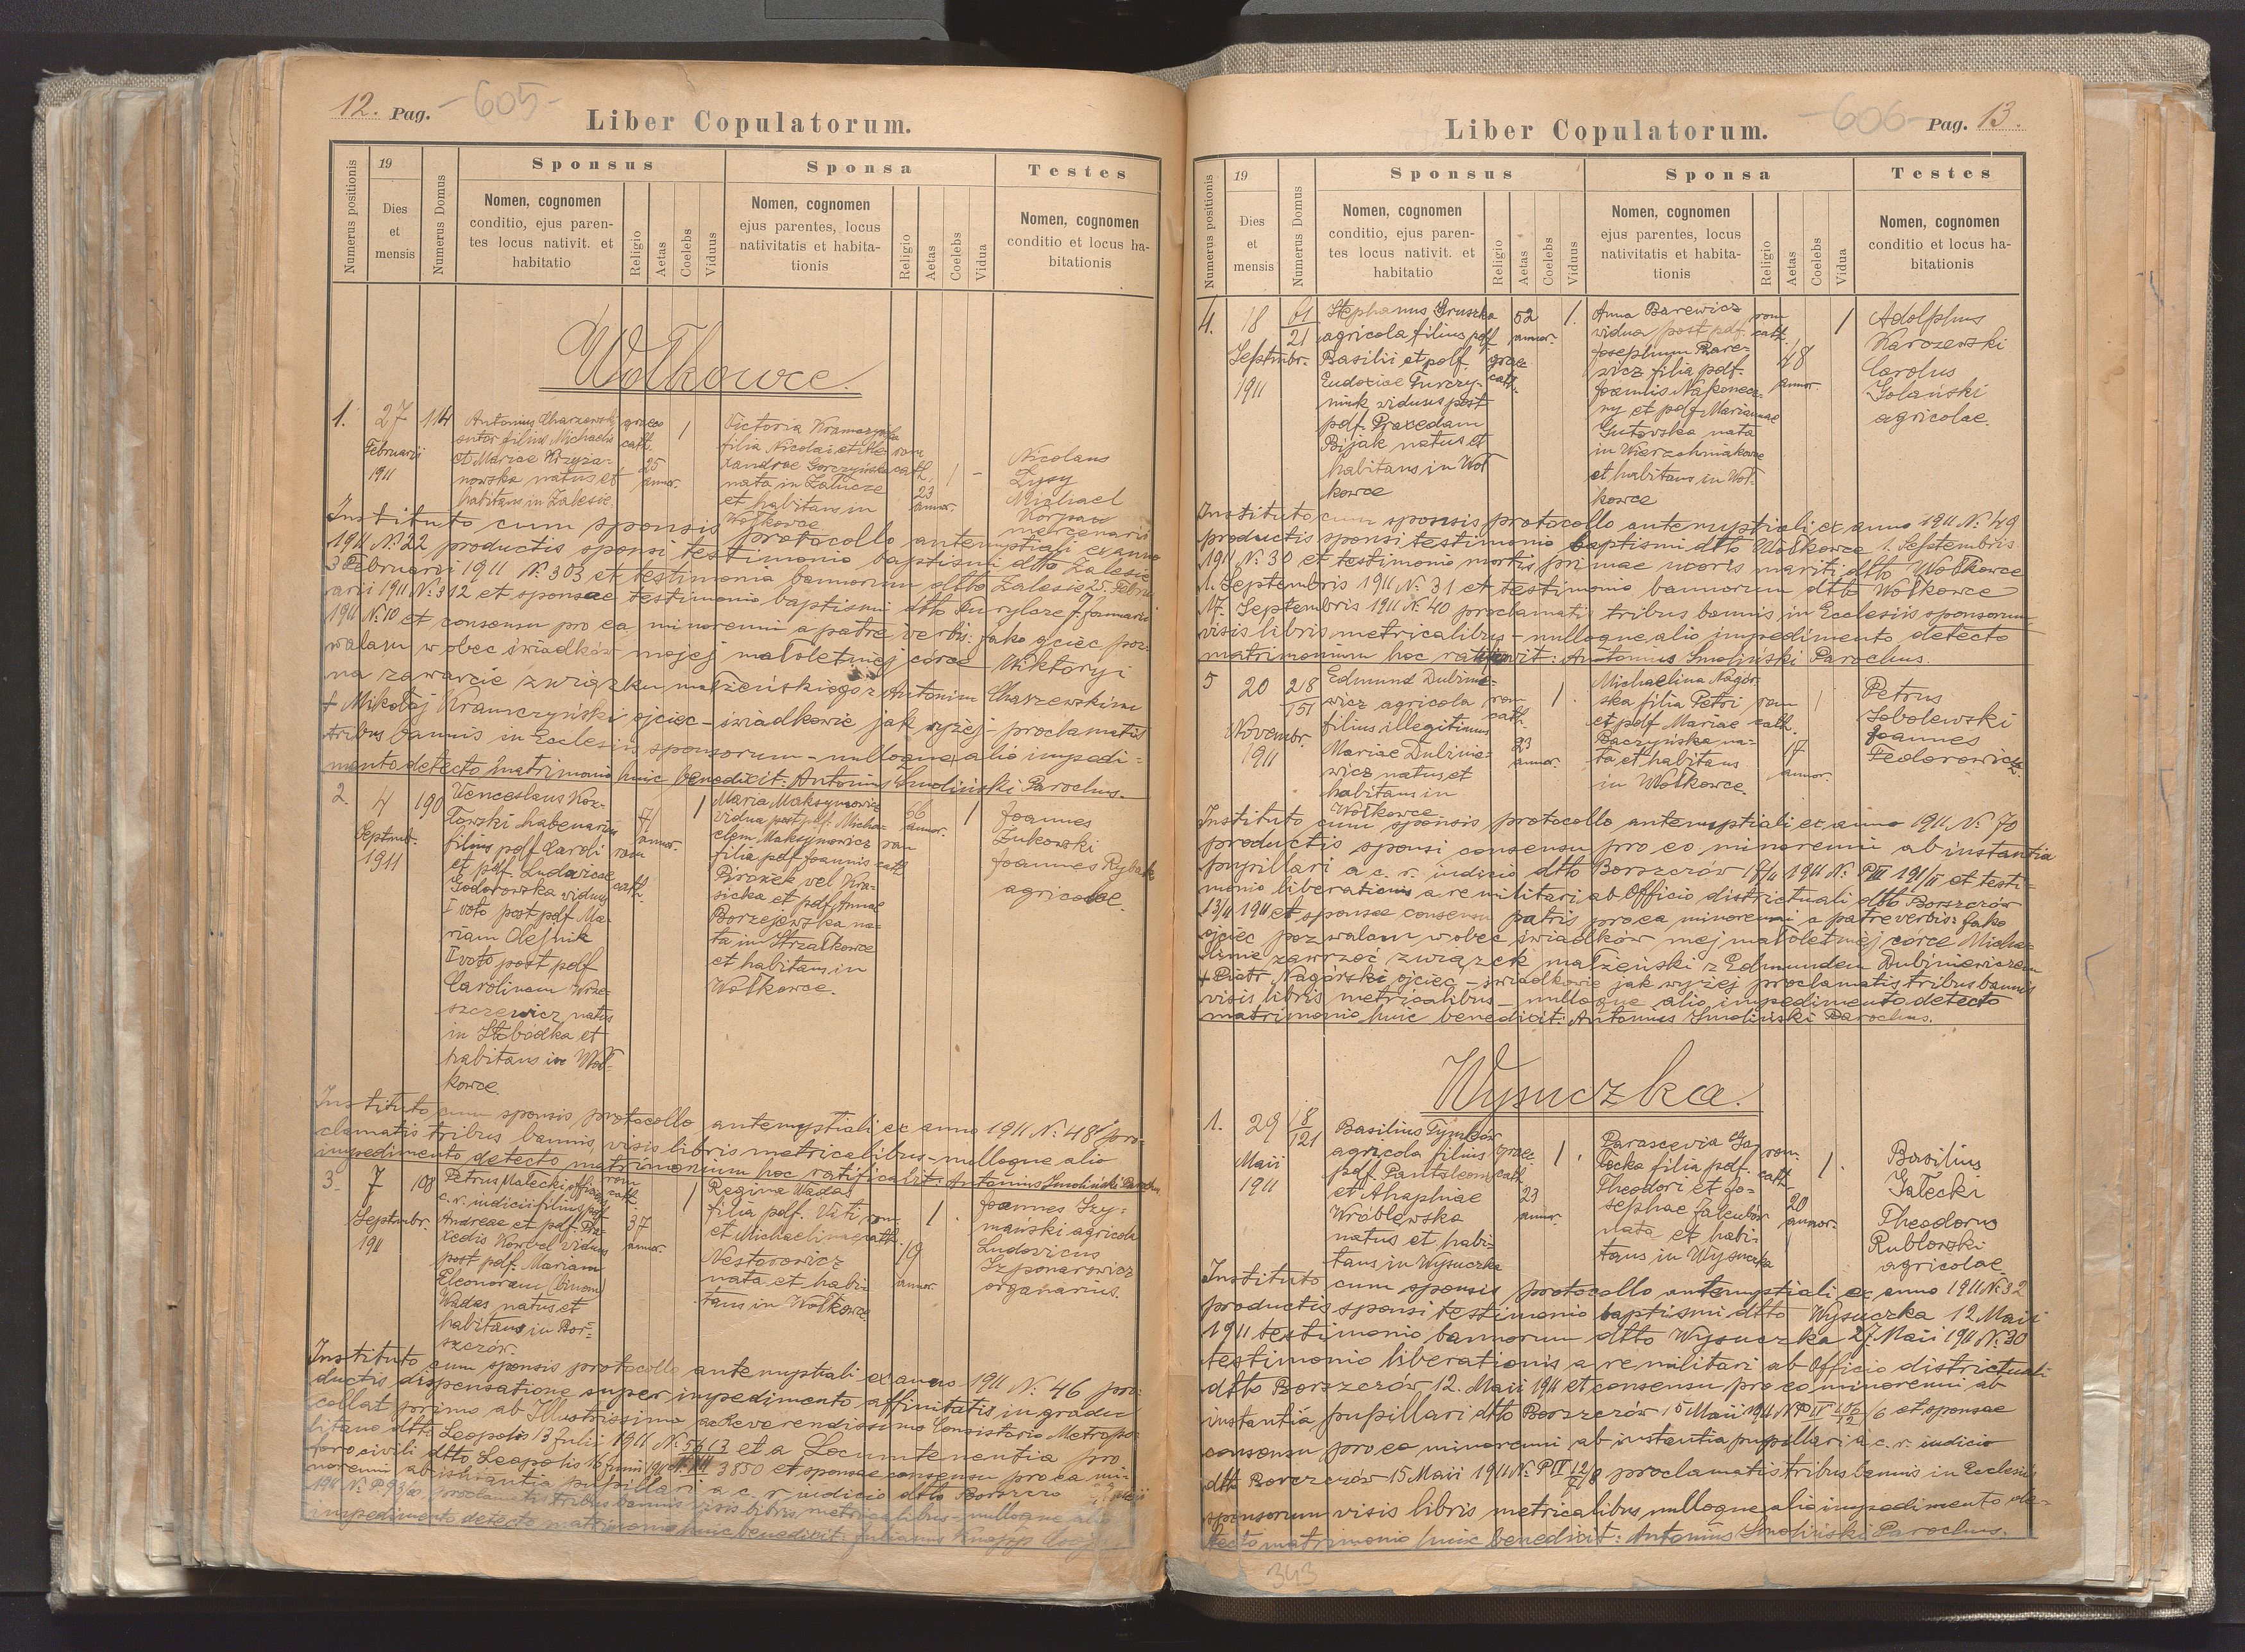 12. Pag. -605-
Liber Copulatorum.
Numerus positionis
19
Dies
et
mensis
Numerus Domus
Sponsus
Nomen, cognomen
conditio, ejus paren-
tes locus nativit. et
habitatio
Religio
Aetas
Coelebs
Viduus
Sponsa
Nomen, cognomen
ejus parentes, locus
nativitatis et habita-
tionis
Religio
Aetas
Coelebs
Vidua
Testes
Nomen, cognomen
conditio et locus ha-
bitationis
Wołkowce.
1.
27
Februarii
1911
114
Antonius Charzewski
sutor filius Michaelis
et Mariae Krzyża-
nowska natus et
habitans in Zalesie
graeco
cath.
25
annor.
1
Victoria Kramczyńska
filia Nicolai et Ale-
xandrae Gorczyńska
nata in Załucze
et habitans in
Wołkowce
rom
cath.
23
annor.
1
Nicolaus
Łysy
Michael
Korpan
mercenarii
Instituto cum sponsis protocollo antenuptiali ex anno
1911 N: 22 productis sponsi testimonio baptismi dtto Zalesie
3 Februarii 1911 N: 303 et testimonia bannorum dtto Zalesie 25. Febru
arii 1911 N: 312 et sponsae testimonio baptismi dtto Turylcze 7 Januarii
1911 N: 10 et consensu pro ea minorenni a patre verbis: Jako ojciec poz-
walam w obec świadków mojej małoletniej córce Wiktoryi
na zawarcie związku małżeńskiego z Antonim Charzewskim
+ Mikołaj Kramczyński ojciec - świadkowie jak wyżej - proclamatis
tribus bannis in Ecclesiis sponsorum - nulloque alio impedi-
mento detecto matrimonio huic benedixit: Antonius Smoliński Parochus.
2.
4
Septmb.
1911
190
Venceslaus Koz-
łowski habenarius
filius pdf Caroli
et pdf. Ludovicae
Godorowska viduus
I voto post pdf Ma-
riam Olejnik
II voto post pdf
Carolinam Wrze-
szczewicz natus
in Słobódka et
habitans in Woł-
kowce.
rom
cath.
annor.
1
Maria Maksymowicz
vidua post pdf. Micha-
elem Maksymowicz
filia pdf Joannis
Pirożek vel Kra-
sicka et pdf Annae
Borzejewska na-
ta in Strzałkowce
et habitans in
Wołkowce.
rom
cath
66
annor.
1
Joannes
Żukowski
Joannes Rybak
agricolae.
Instituto cum sponsis protocollo antenuptiali ex anno 1911 N: 48 pro-
clamatis tribus bannis, visis libris metricalibus - nulloque alio
impedimento detecto matrimonium hoc ratificabit: Antonius Smoliński Parochus
3.
7
Septmbr.
1911
108
Petrus Małecki officians
c. r. iudicii filius pdf
Andreae et pdf. Pra-
xedis Korbel viduus
post pdf. Mariam
Eleonoram (binom)
Wadas natus et
habitans in Bor-
szczów.
rom
cath.
37
annor.
1
Regina Wadas
filia pdf. Viti
et Michaelinae
Nestorowicz
nata et habi-
tans in Wołkowce
rom
cath.
19
annor.
1.
Joannes Szy-
mański agricola
Ludovicus
Szponarowicz
organarius.
Instituto cum sponsis protocollo antenuptiali ex anno 1911 N: 46 pro-
ductis dispensatione super impedimento affinitatis in gradu
collat primo ab Illustrissimo ac Reverendissimo Consistorio Metropo-
litano dtto Leopolis 13 Julii 1911 N: 5613 et a Locumtenentia pro
foro civili dtto Leopolis 16 Junii 1911 N: 3850 et sponsae consensu pro ea mi-
norenni ab instantia pupillari a c. r. iudicio dtto Borszczów
proclamatis tribus bannis visis libris metricalibus - nulloque alio
impedimento detecto matrimonio huic benedixit: Julianus Knapp
-606- Pag. 13.
Liber Copulatorum.
Numerus positionis
19
Dies
et
mensis
Numerus Domus
Sponsus
Nomen, cognomen
conditio, ejus paren-
tes locus nativit. et
habitatio
Religio
Aetas
Coelebs
Viduus
Sponsa
Nomen, cognomen
ejus parentes, locus
nativitatis et habita-
tionis
Religio
Aetas
Coelebs
Vidua
Testes
Nomen, cognomen
conditio et locus ha-
bitationis
4.
18
Septmbr.
1911
61
21
Stephanus Gruszka
agricola filius pdf
Basilii et pdf.
Eudoxiae Furczy-
niuk viduus post
pdf. Praxedam
Bijak natus et
habitans in Woł
kowce
graec
cath.
52
annor.
1.
Anna Barewicz
vidua post pdf.
Josephum Bare-
wicz filia pdf.
Joannis Nakonecz-
ny et pdf Mariannae
Gutowska nata
in Wierzchniakowce
et habitans in Woł-
kowce
rom
cath.
48
annor.
1
Adolphus
Karozewski
Carolus
Golański
agricolae.
Instituto cum sponsis protocollo antenuptiali ex anno 1911 N: 49
productis sponsi testimonio baptismi dtto Wołkowce 1. Septembris
1911 N: 30 et testimonio mortis primae uxoris mariti dtto Wołkowce
1. Septembris 1911 N: 31 et testimonio bannorum dtto Wołkowce
17. Septembris 1911 N: 40 proclamatis tribus bannis in Ecclesiis sponsorum
visis libris metricalibus - nulloque alio impedimento detecto
matrimonium hoc ratificavit: Antonius Smoliński Parochus.
5
20
Novembr.
1911
218
151
Edmund Dubinie-
wicz agricola
filius illegitimus
Mariae Dubinie-
wicz natus et
habitans in
Wołkowce
rom
cath.
23
annor.
1.
Michaelina Nagór-
ska filia Petri
et pdf Mariae
Baczyńska na-
ta et habitans
in Wołkowce.
rom
cath.
17
annor.
1
Petrus
Sobolewski
Joannes
Fedorowicz
Instituto cum sponsis protocollo antenuptiali ex anno 1911 N: 70
productis sponsi consensu pro eo minorenni ab instantia
pupillari a c. r. iudicio dtto Borszczów 18/11 1911 N: P III 191/11 et testi-
monio liberationis a re militari ab Officio districtuali dtto Borszczów
13/11 1911 et sponsae consensu patris pro ea minorenni a patre verbis: Jako
ojciec pozwalam w obec świadków mej małoletniej córce Micha-
linie zawrzeć związek małżeński z Edmundem Dubiniewiczem
+ Piotr Nagórski ojciec - świadkowie jak wyżej proclamatis tribus bannis
visis libris metricalibus - nulloque alio impedimento detecto
matrimonio huic benedixit: Antonius Smoliński Parochus.
Wysuczka.
1.
29
Maii
1911
18
121
Basilius Tymków
agricola filius
pdf. Pantaleom
et Ahaphiae
Wróblewska
natus et habi-
tans in Wysuczka
graec
cath
23
annor.
1.
Parascevia Ga-
łocka filia pdf.
Theodori et Jo-
sephae Jakubów
nata et habi-
tans in Wysuczka
rom.
cath.
20
annor.
1.
Basilius
Gałecki
Theodorus
Rublowski
agricolae
Instituto cum sponsis protocollo antenuptiali ex anno 1911 N: 32
productis sponsi testimonio baptismi dtto Wysuczka 12 Maii
1911 testimonio bannorum dtto Wysuczka 27. Maii 1911 N: 30
testimonio liberationis a re militari ab Officio districtuali
dtto Borszczów 12. Maii 1911 et consensu pro eo minorenni ab
instantia pupillari dtto Borszczów 15 Maii 1911 et sponsae
consensu pro ea minorenni ab instantia pupillari a c. r. iudicio
dtto Borszczów 15 Maii 1911 N: P IV 12/8 proclamatis tribus bannis in Ecclesiis
sponsorum visis libris metricalibus nulloque alio impedimento de-
tecto matrimonio huic benedixit: Antonius Smoliński Parochus.
343